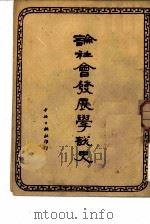 論社會發展學說史